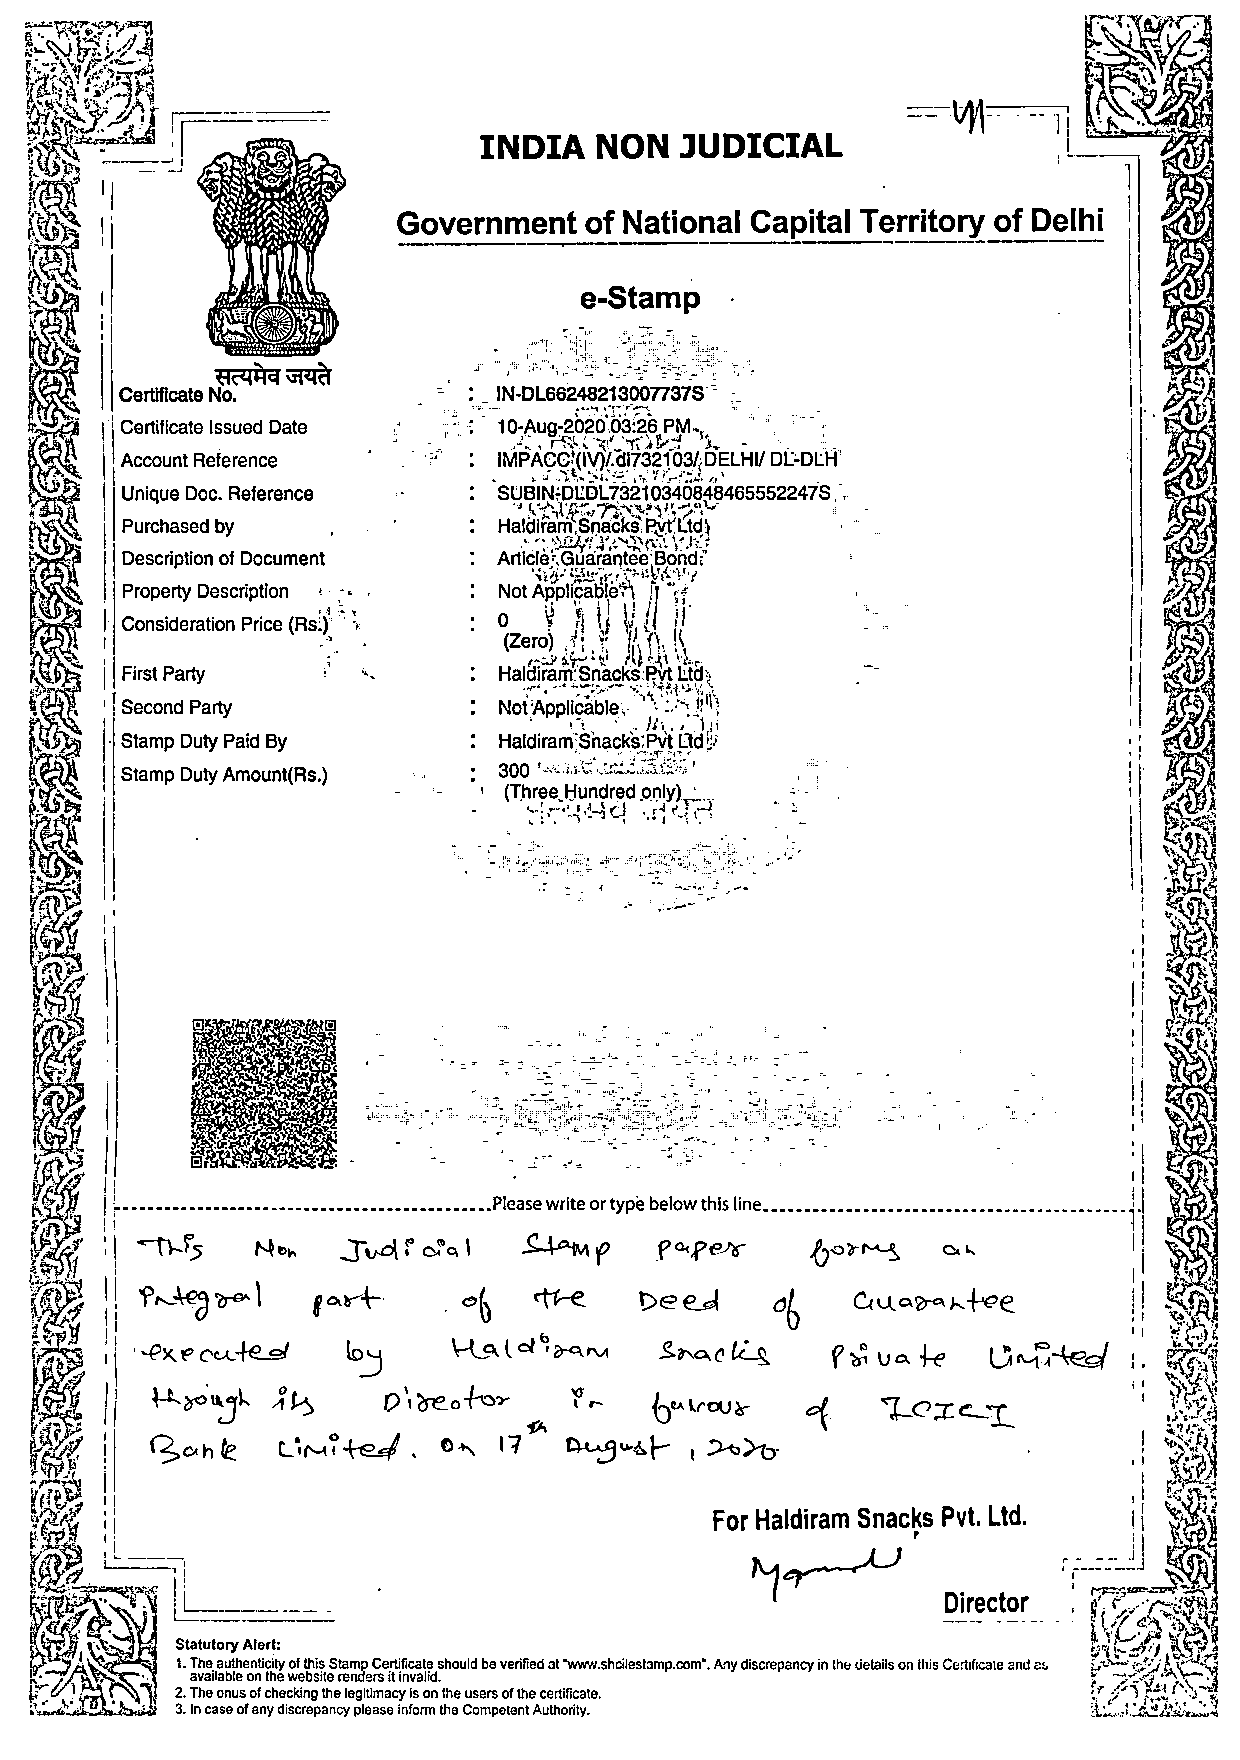 INDIA NON JUDICIAL
Government of National Capital Territory of Delhi
e-Stamp
सत्यमेव जयते
Certificate No. : IN-DL66248213007737S
Certificate Issued Date : 10-Aug-2020 03:26 PM
Account Reference : IMPACC (IV)/ dl732103/ DELHI/ DL-DLH
Unique Doc. Reference : SUBIN-DLDL73210340848465552247S
Purchased by : Haldiram Snacks Pvt Ltd
Description of Document : Article Guarantee Bond
Property Description : Not Applicable
Consideration Price (Rs.) : 0
(Zero)
First Party : Haldiram Snacks Pvt Ltd
Second Party : Not Applicable
Stamp Duty Paid By : Haldiram Snacks Pvt Ltd
Stamp Duty Amount(Rs.) : 300
(Three Hundred only)
सत्यमेव जयते
Please write or type below this line
This Non Judicial Stamp paper forms an
integral part of the Deed of Guarantee
executed by Haldiram Snacks Private Limited
through its Director in favour of ICICI
Bank Limited. on 17th August, 2020
For Haldiram Snacks Pvt. Ltd.
Director
Statutory Alert:
1. The authenticity of this Stamp Certificate should be verified at "www.shcilestamp.com". Any discrepancy in the details on this Certificate and as
available on the website renders it invalid.
2. The onus of checking the legitimacy is on the users of the certificate.
3. In case of any discrepancy please inform the Competent Authority.